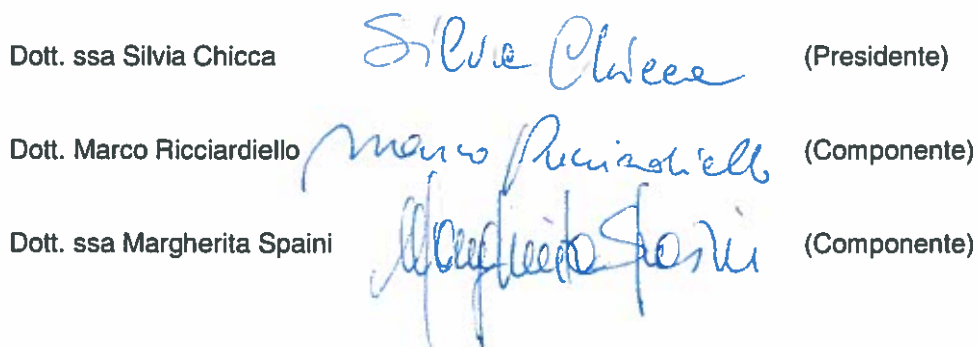 Dott. ssa Silvia Chicca Silvia Chicca (Presidente)
Dott. Marco Ricciardiello Marco Ricciardiello (Componente)
Dott. ssa Margherita Spaini Margherita Spaini (Componente)